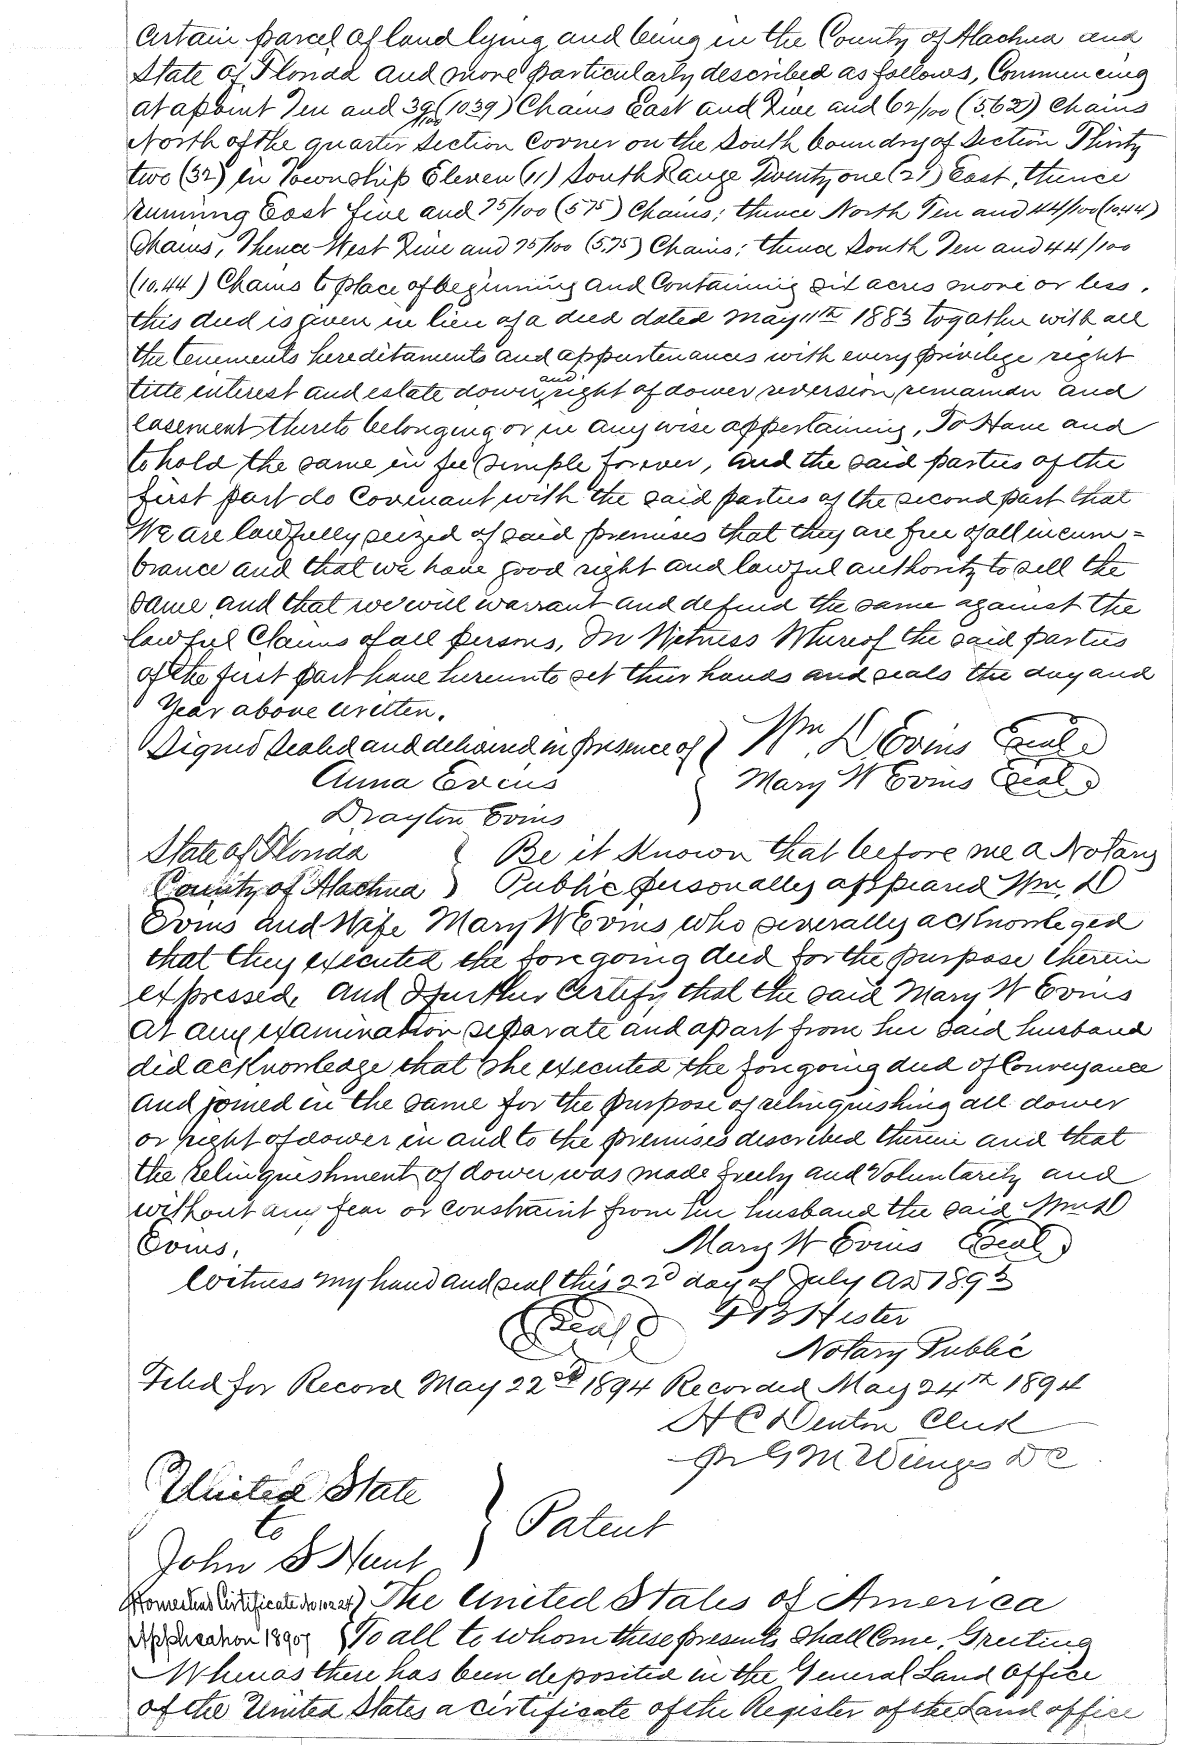 certain parcel of land lying and being in the County of Alachua and
State of Florida and more particularly described as follows, Commencing
at a point Ten and 39/100 (1039) Chains East and Five and 62/100 (5.62) Chains
North of the quarter section corner on the South boundry of Section Thirty
two (32) in Township Eleven (11) South Range Twenty one (21) East, thence
running East five and 75/100 (575) Chains; thence North Ten and 44/100 (1044)
Chains, Thence West Five and 75/100 (5.75) Chains; thence South Ten and 44/100
(10.44) Chains to place of beginning and Containing six acres more or less.
this deed is given in lieu of a deed dated May 11th 1883 togather with all
the tenements hereditaments and appurtenances with every privilege right
title interest and estate dower and right of dower reversion remainder and
easement thereto belonging or in any wise appertaining, To Have and
to hold the same in fee simple forever, and the said parties of the
first part do Covenant with the said parties of the second part that
We are lawfully seized of said premises that they are free of all incum=
brance and that we have good right and lawful authority to sell the
same and that we will warrant and defend the same against the
lawful Claims of all persons, In Witness Whereof the said parties
of the first part have hereunto set their hands and seals the day and
Year above written.
Signed Sealed and delivered in presence of } Wm D Evins Seal
Anna Evins } Mary W Evins Seal
Drayton Evins
State of Florida } Be it Known that before me a Notary
County of Alachua } Public personally appeard Wm D
Evins and Wife Mary W Evins who severally acknowleged
that they executed the foregoing deed for the purpose therein
expressed, and I further Certify that the said Mary W Evins
at any examination separate and apart from her said husband
did acknowledge that she executed the foregoing deed of Conveyance
and joined in the same for the purpose of relinquishing all dower
or right of dower in and to the premises described therein and that
the relinquishment of dower was made freely and Voluntarily and
without any fear or constraint from her husband the said Wm D
Evins, Mary W Evins Seal
Witness my hand and seal this 22d day of July AD 1893
Seal F B Hister
Notary Public
Filed for Record May 22nd 1894 Recorded May 24th 1894
H C Denton Clerk
Pr G M Wienges D C
United State
to } Patent
John S Hunt
Homestead Certificate No 10224 } The United States of America
Application 18907 } To all to whom these presents shall Come, Greeting
Whereas there has been deposited in the General Land Office
of the United States a certificate of the Register of the Land office